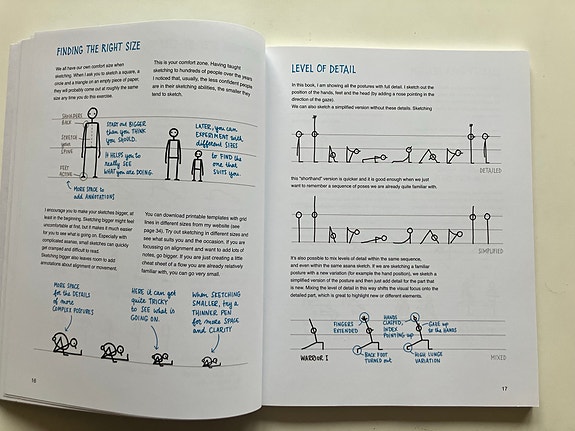 FINDING THE RIGHT SIZE
We all have our own comfort size when
sketching. When I ask you to sketch a square, a
circle and a triangle on an empty piece of paper,
they will probably come out at roughly the same
size any time you do this exercise.
This is your comfort zone. Having taught
sketching to hundreds of people over the years
I noticed that, usually, the less confident people
are in their sketching abilities, the smaller they
tend to sketch.
SHOULDERS
BACK
STRETCH
your
SPINE
FEET
ACTIVE
START OUT BIGGER
than you THINK
you SHOULD.
IT HELPS you to
really SEE
WHAT you ARE DOING.
LATER, you can
EXPERIMENT with
different SIZES
to FIND
the ONE
that SUITS
you.
MORE SPACE to
add ANNOTATIONS
I encourage you to make your sketches bigger, at
least in the beginning. Sketching bigger might feel
uncomfortable at first, but it makes it much easier
for you to see what is going on. Especially with
complicated asanas, small sketches can quickly
get cramped and difficult to read.
Sketching bigger also leaves room to add
annotations about alignment or movement.
You can download printable templates with grid
lines in different sizes from my website (see
page 34). Try out sketching in different sizes and
see what suits you and the occasion. If you are
focussing on alignment and want to add lots of
notes, go bigger. If you are just creating a little
cheat sheet of a flow you are already relatively
familiar with, you can go very small.
MORE SPACE
for the DETAILS
of more
COMPLEX POSTURES
HERE it can get
quite TRICKY
to SEE what is
GOING ON.
WHEN SKETCHING
SMALLER, try A
THINNER PEN
for more SPACE
and CLARITY
16
LEVEL OF DETAIL
In this book, I am showing all the postures with full detail. I sketch out the
position of the hands, feet and the head (by adding a nose pointing in the
direction of the gaze).
We can also sketch a simplified version without these details. Sketching
DETAILED
this "shorthand" version is quicker and it is good enough when we just
want to remember a sequence of poses we are already quite familiar with.
SIMPLIFIED
It's also possible to mix levels of detail within the same sequence,
and even within the same asana sketch. If we are sketching a familiar
posture with a new variation (for example the hand position), we sketch
a simplified version of the posture and then just add detail for the part that
is new. Mixing the level of detail in this way shifts the visual focus onto the
detailed part, which is great to highlight new or different elements.
FINGERS
EXTENDED
HANDS
CLASPED,
INDEX
POINTING UP
GAZE up
to the HANDS
WARRIOR I
BACK FOOT
TURNED out
HIGH LUNGE
VARIATION
MIXED
17